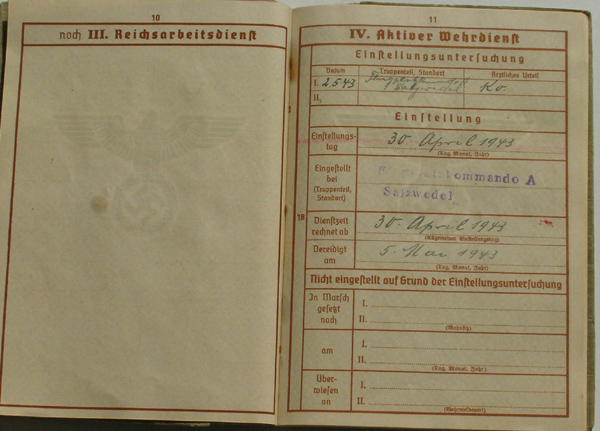 10
noch III. Reichsarbeitsdienst
11
IV. Aktiver Wehrdienst
Einstellungsuntersuchung
Datum
Truppenteil, Standort
Ärztliches Urteil
I. 2.5.43
Salzwedel
Kv.
II.
Einstellung
Einstellungs-
tag
30. April 1943
(Tag, Monat, Jahr)
Eingestellt
bei
(Truppenteil,
Standort)
kommando A
Salzwedel
18
Dienstzeit
rechnet ab
30. April 1943
(Allgemeiner Einstellungstag)
Vereidigt
am
5. Mai 1943
(Tag, Monat, Jahr)
Nicht eingestellt auf Grund der Einstellungsuntersuchung
In Marsch
gesetzt
nach
I.
II.
(Wohnsitz)
am
I.
II.
(Tag, Monat, Jahr)
Über-
wiesen
an
I.
II.
(Wehrmeldeamt)